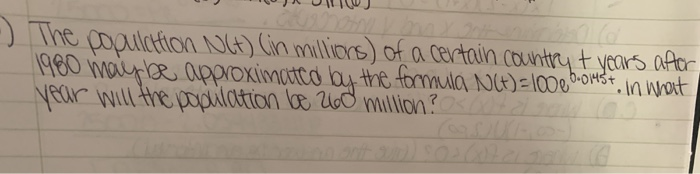 ) The population N(t) (in millions) of a certain country t years after
1980 may be approximated by the formula N(t)=100e^0.0145t. In what
year will the population be 260 million?